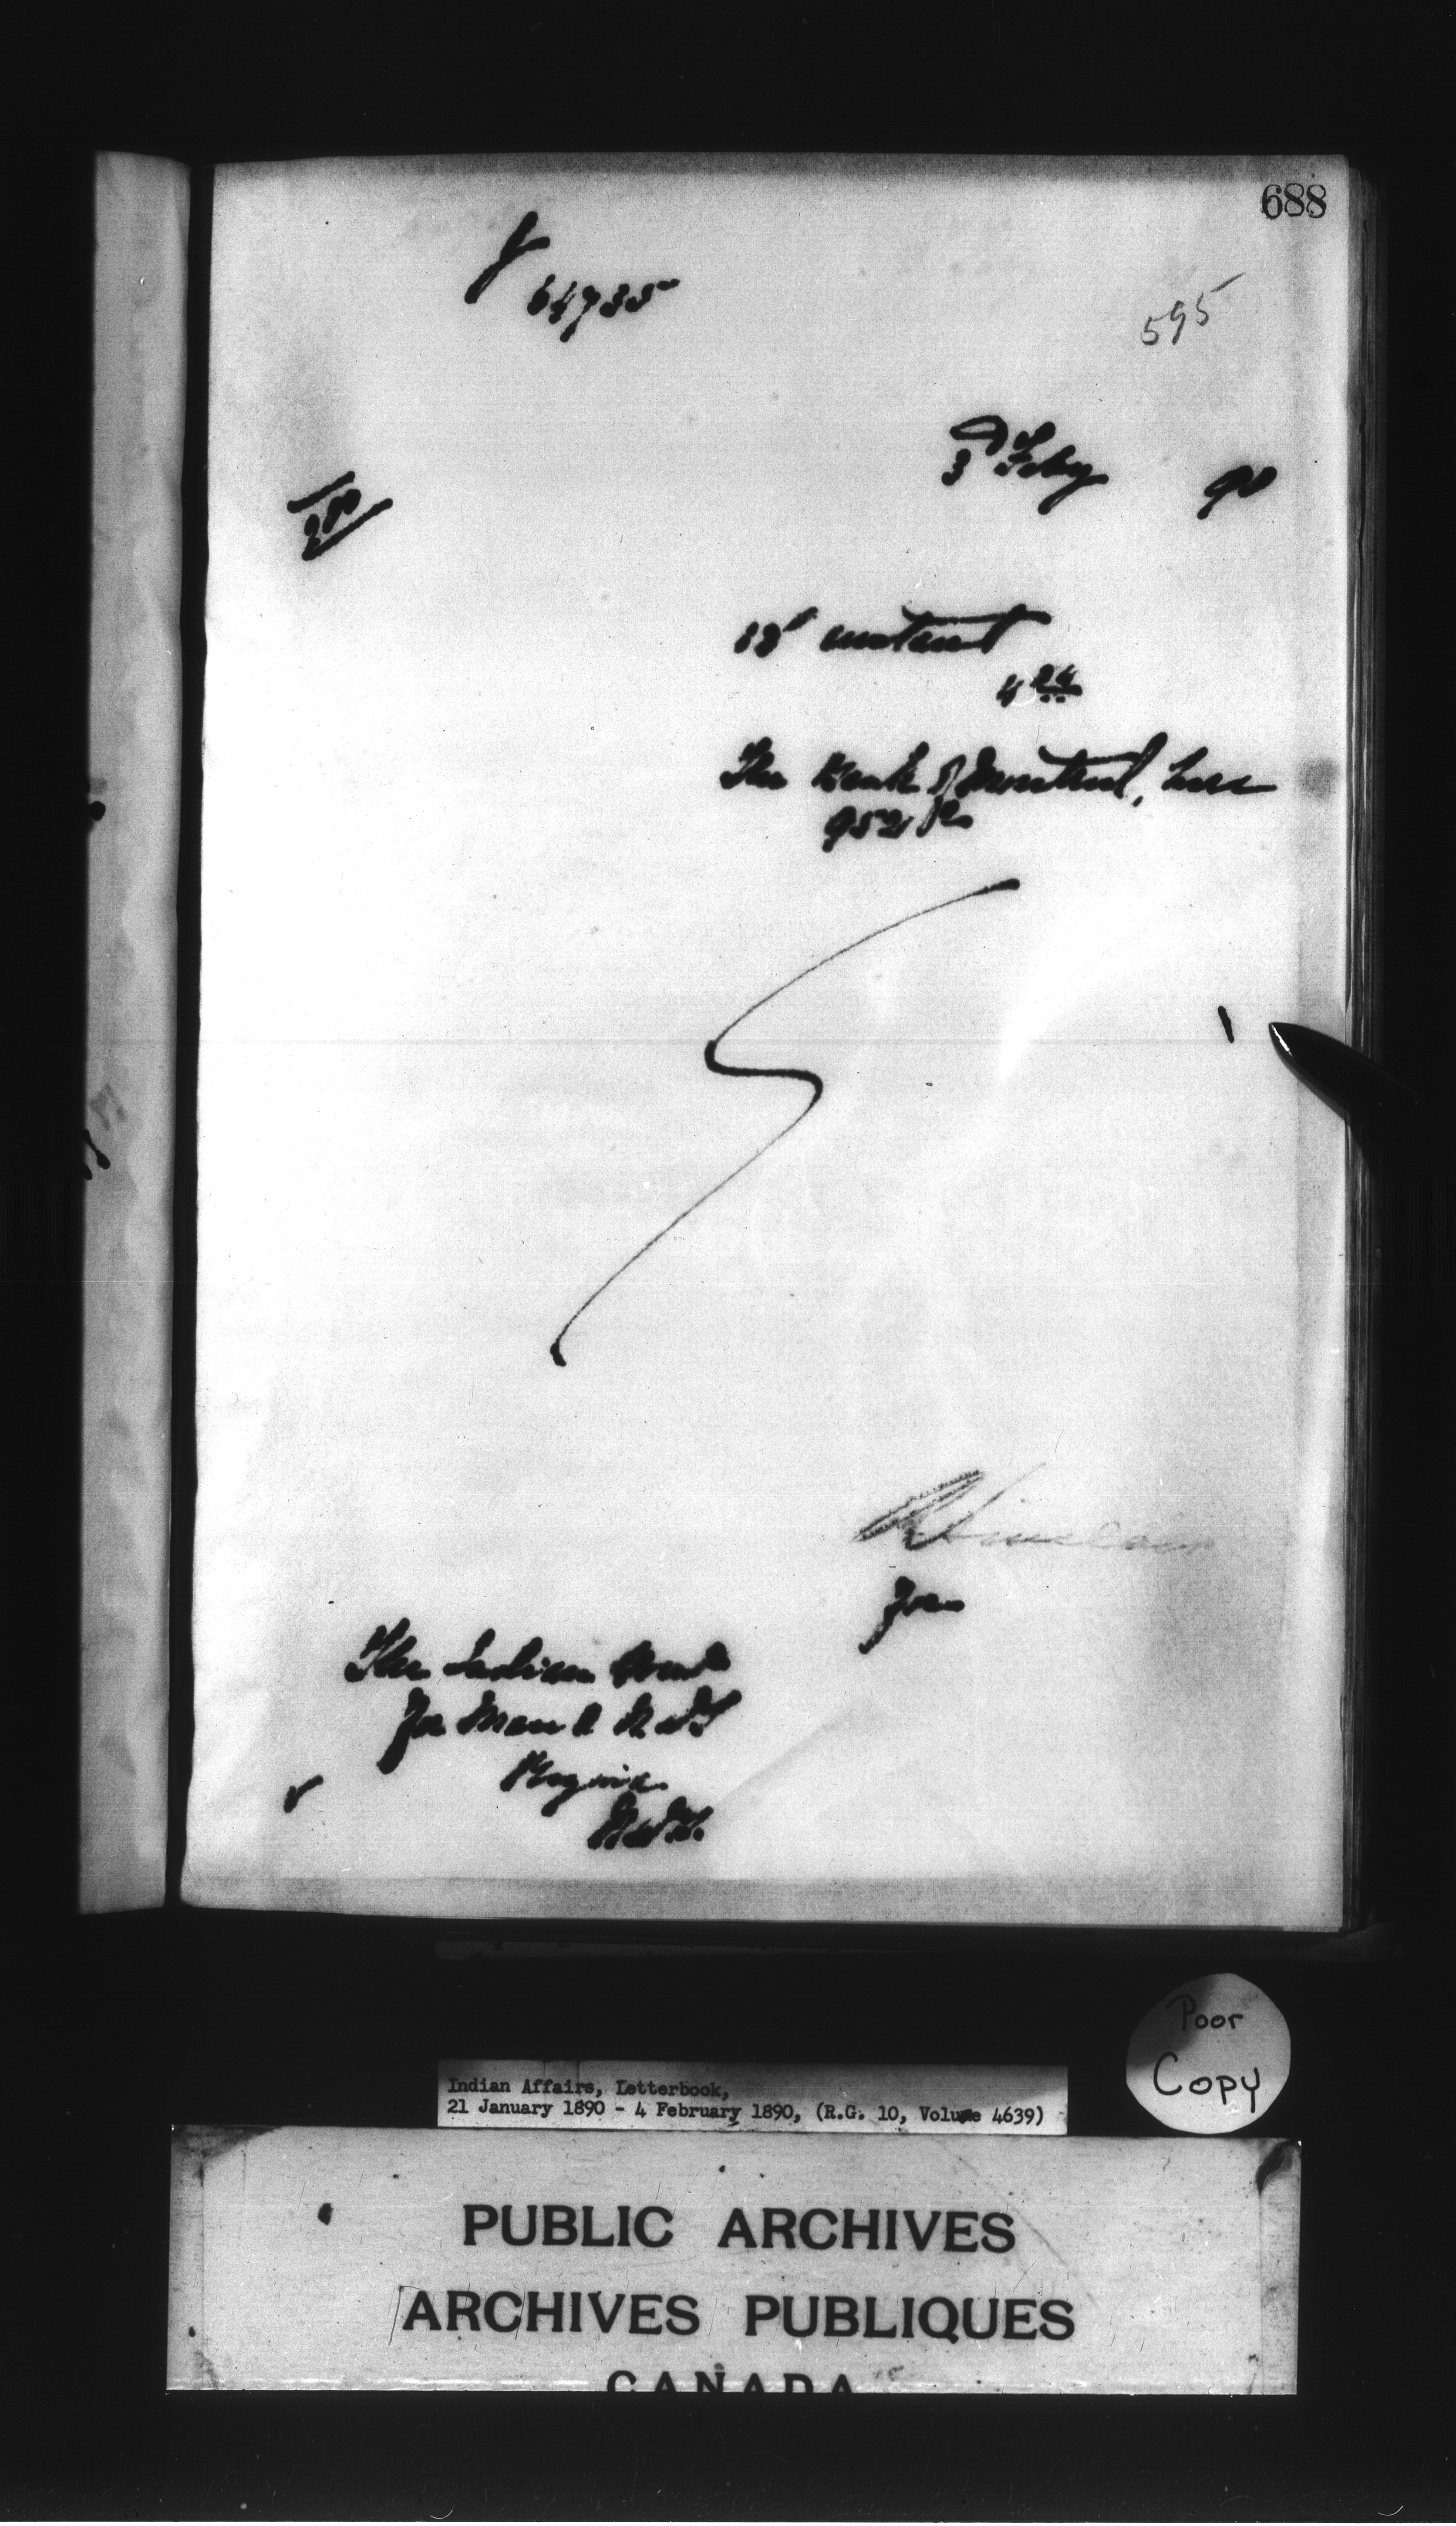 688
64735
595
3 Feby 90
instant
4 24
The Bank of Montreal, here
952
Sinclair
for
The Indian Comr
for Man & N.W.T
Regina
N.W.T.
Poor
Copy
Indian Affairs, Letterbook,
21 January 1890 - 4 February 1890, (R.G. 10, Volume 4639)
PUBLIC ARCHIVES
ARCHIVES PUBLIQUES
CANADA